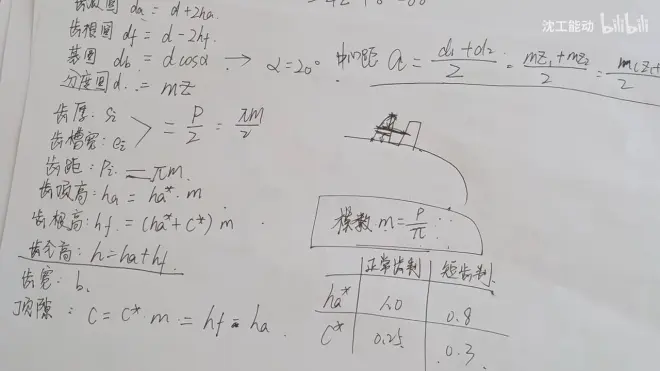 齿顶圆 da = d+2ha
齿根圆 df = d-2hf.
基圆 db = d cosα → α=20°
分度圆 d. = mz
中心距 a = (d1+d2)/2 = (mz1+mz2)/2 =
齿厚: si
齿槽宽: ei
> = P/2 = πm/2
齿距: Pi = πm.
齿顶高: ha = ha* · m
齿根高: hf. = (ha*+c*) m
齿全高: h = ha + hf.
齿宽: b.
顶隙: c = c*·m = hf = ha.
模数. m = P/π
正常齿制 短齿制
ha* 1.0 0.8
c* 0.25 0.3
沈工能动 bilibili